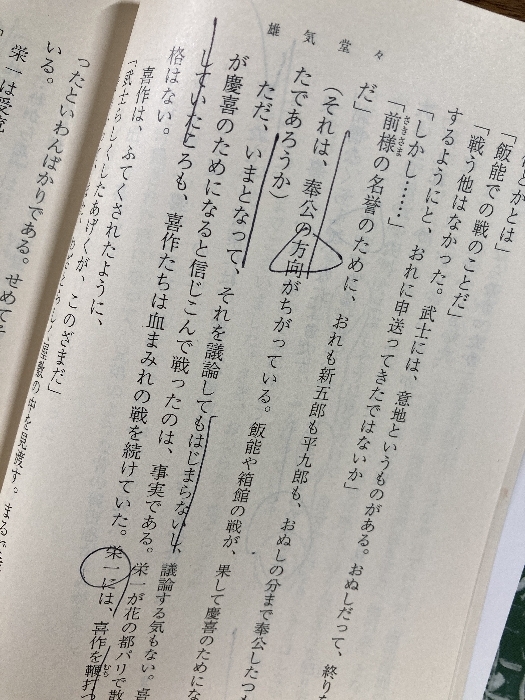 雄気堂々
とかとは」
「飯能での戦のことだ」
「戦う他はなかった。武士には、意地というものがある。おぬしだって、終りを
するようにと、おれに申送ってきたではないか」
「しかし……」
「前様の名誉のために、おれも新五郎も平九郎も、おぬしの分まで奉公したつも
さきさま
だ」
(それは、奉公の方向がちがっている。飯能や箱館の戦が、果して慶喜のためにな
たであろうか)
ただ、いまとなって、それを議論してもはじまらないし、議論する気もない。喜
が慶喜のためになると信じこんで戦ったのは、事実である。栄一が花の都パリで散
していたころも、喜作たちは血まみれの戦を続けていた。栄一には、喜作を鞭打つ
むち
格はない。
喜作は、ふてくされたように、
「武士らしくしたあげくが、このざまだ」
の中を見渡す。まるで
ったといわんばかりである。せめて
いる。
栄一は